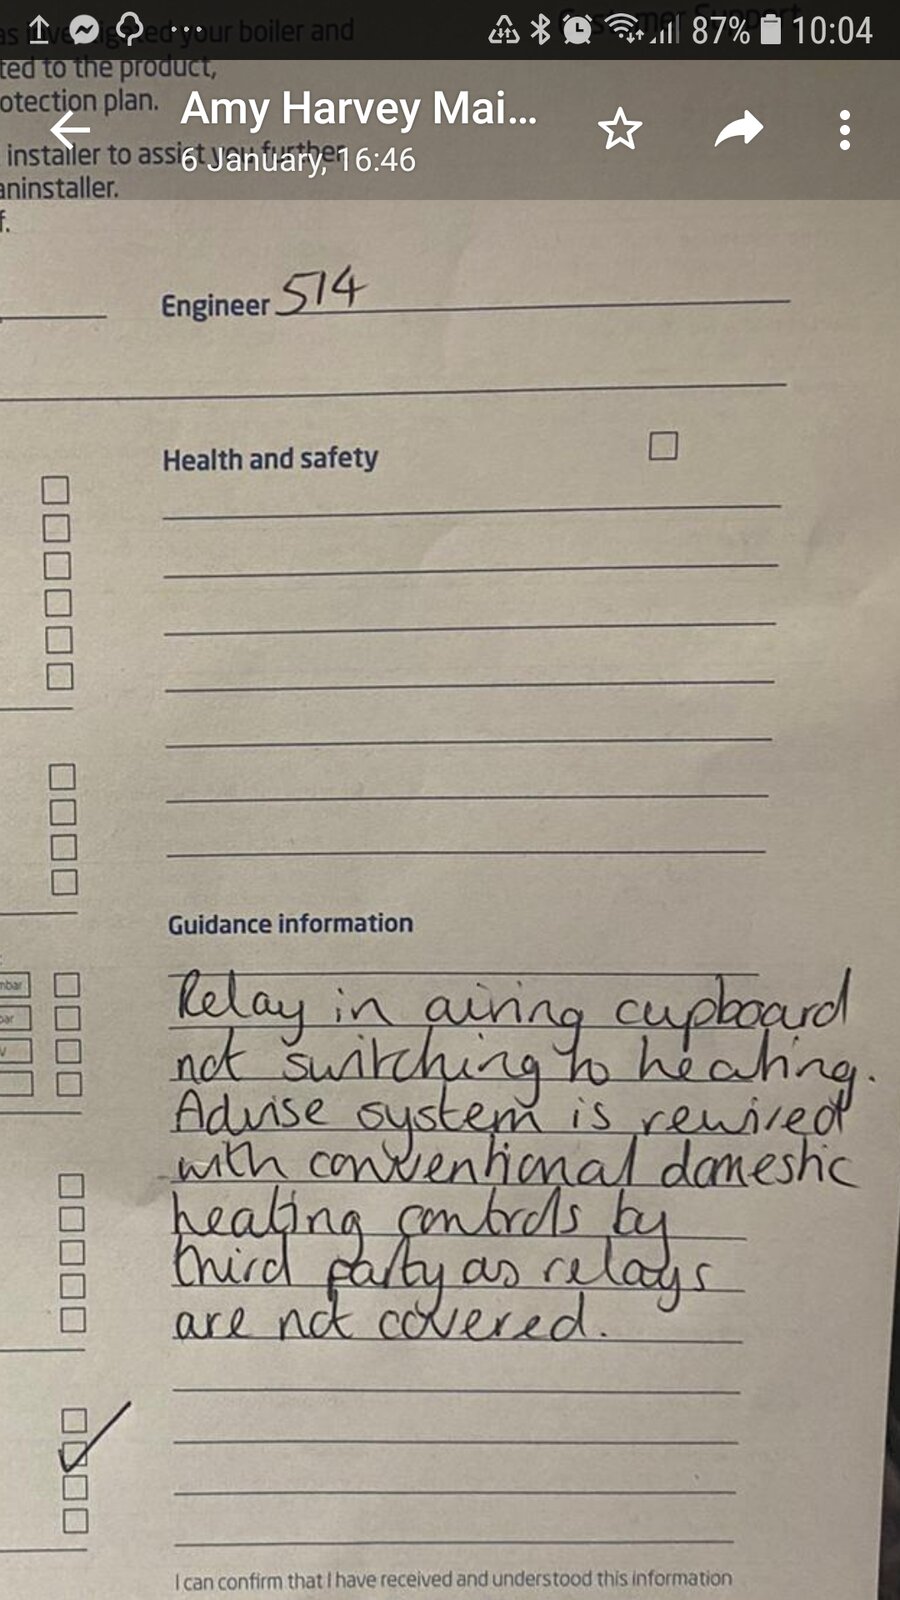 87% 10:04
as investigated your boiler and
Customer Support
ted to the product,
otection plan.
Amy Harvey Mai...
6 January, 16:46
installer to assist you further
aninstaller.
f.
Engineer 514
Health and safety
Guidance information
mbar
bar
v
Relay in airing cupboard
not switching to heating.
Advise system is rewired
with conventional domestic
heating controls by
third party as relays
are not covered.
I can confirm that I have received and understood this information